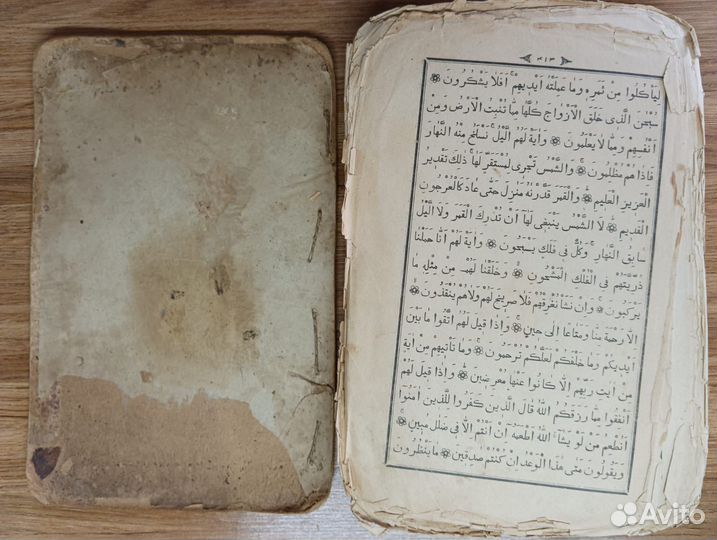 لِيَأْكُلُوا مِنْ ثَمَرِهِ وَمَا عَمِلَتْهُ اَيْدِيهِمْ اَفَلَا يَشْكُرُونَ
سُبْحٰنَ الَّذِى خَلَقَ الْاَزْوَاجَ كُلَّهَا مِمَّا تُنْبِتُ الْاَرْضُ وَمِنْ
اَنْفُسِهِمْ وَمِمَّا لَا يَعْلَمُونَ وَاٰيَةٌ لَهُمُ الَّيْلُ نَسْلَخُ مِنْهُ النَّهَارَ
فَاِذَا هُمْ مُظْلِمُونَ وَالشَّمْسُ تَجْرِى لِمُسْتَقَرٍّ لَهَا ذٰلِكَ تَقْدِيرُ
الْعَزِيزِ الْعَلِيمِ وَالْقَمَرَ قَدَّرْنٰهُ مَنَازِلَ حَتّٰى عَادَ كَالْعُرْجُونِ
الْقَدِيمِ لَا الشَّمْسُ يَنْبَغِى لَهَا اَنْ تُدْرِكَ الْقَمَرَ وَلَا الَّيْلُ
سَابِقُ النَّهَارِ وَكُلٌّ فِى فَلَكٍ يَسْبَحُونَ وَاٰيَةٌ لَهُمْ اَنَّا حَمَلْنَا
ذُرِّيَّتَهُمْ فِى الْفُلْكِ الْمَشْحُونِ وَخَلَقْنَا لَهُمْ مِنْ مِثْلِهِ مَا
يَرْكَبُونَ وَاِنْ نَشَأْ نُغْرِقْهُمْ فَلَا صَرِيخَ لَهُمْ وَلَا هُمْ يُنْقَذُونَ
اِلَّا رَحْمَةً مِنَّا وَمَتَاعًا اِلٰى حِينٍ وَاِذَا قِيلَ لَهُمُ اتَّقُوا مَا بَيْنَ
اَيْدِيكُمْ وَمَا خَلْفَكُمْ لَعَلَّكُمْ تُرْحَمُونَ وَمَا تَأْتِيهِمْ مِنْ اٰيَةٍ
مِنْ اٰيٰتِ رَبِّهِمْ اِلَّا كَانُوا عَنْهَا مُعْرِضِينَ وَاِذَا قِيلَ لَهُمْ
اَنْفِقُوا مِمَّا رَزَقَكُمُ اللّٰهُ قَالَ الَّذِينَ كَفَرُوا لِلَّذِينَ اٰمَنُوا
اَنُطْعِمُ مَنْ لَوْ يَشَاءُ اللّٰهُ اَطْعَمَهُ اِنْ اَنْتُمْ اِلَّا فِى ضَلٰلٍ مُبِينٍ
وَيَقُولُونَ مَتٰى هٰذَا الْوَعْدُ اِنْ كُنْتُمْ صٰدِقِينَ مَا يَنْظُرُونَ
Avito